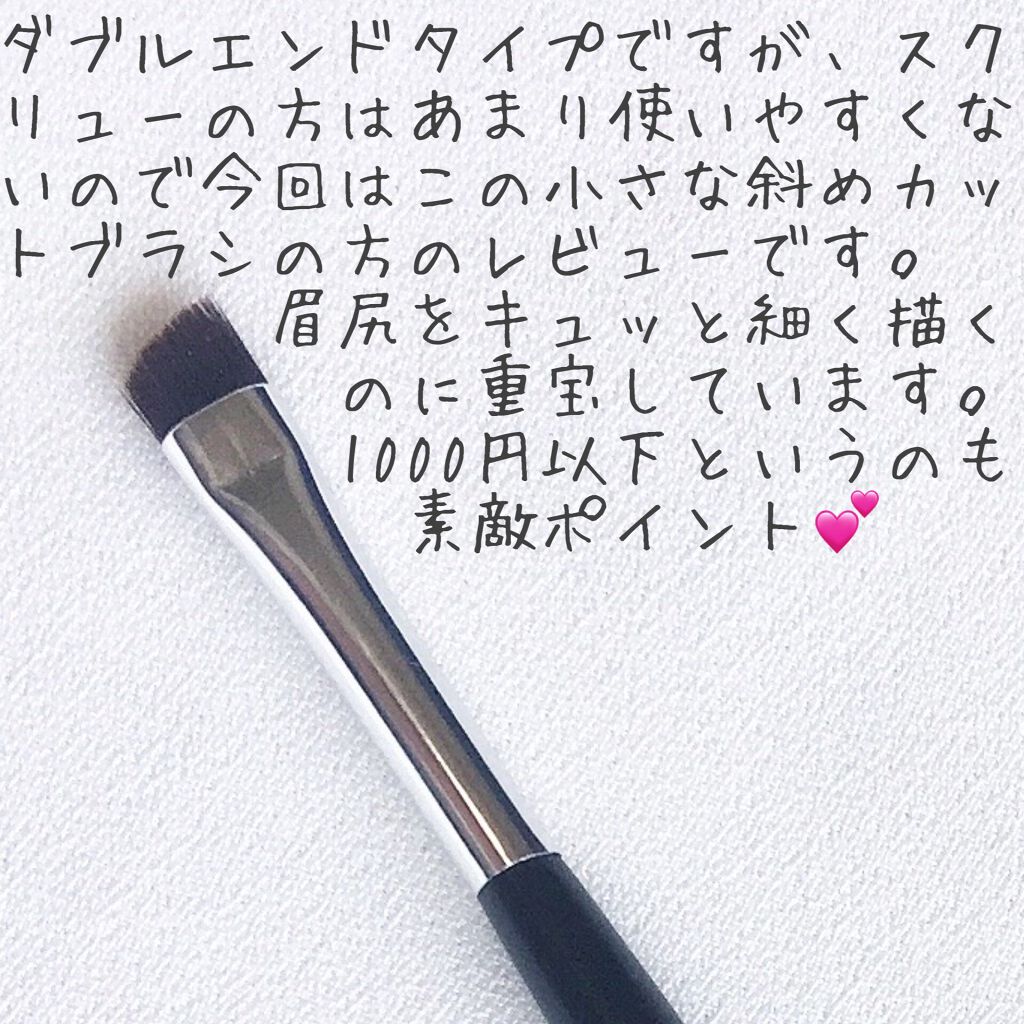 ダブルエンドタイプですが、スク
リューの方はあまり使いやすくな
いので今回はこの小さな斜めカッ
トブラシの方のレビューです。
眉尻をキュッと細く描く
のに重宝しています。
1000円以下というのも
素敵ポイント💕